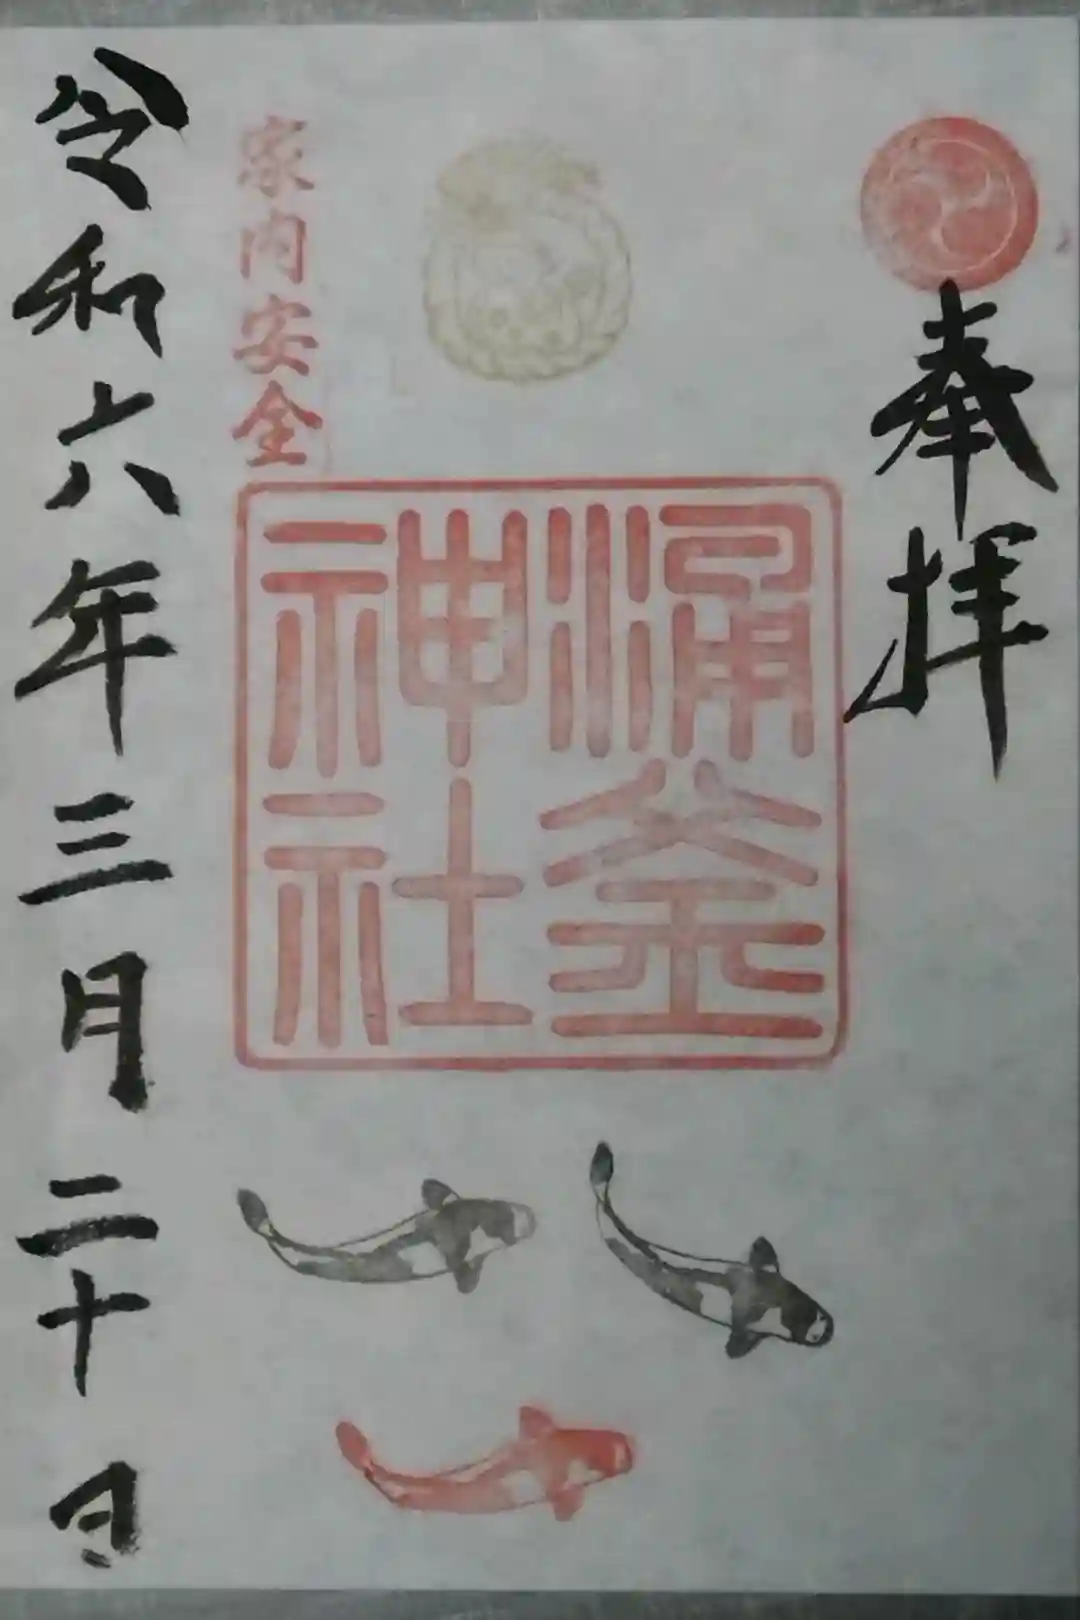 奉拝
湧釜
神社
家内安全
令和六年三月二十日